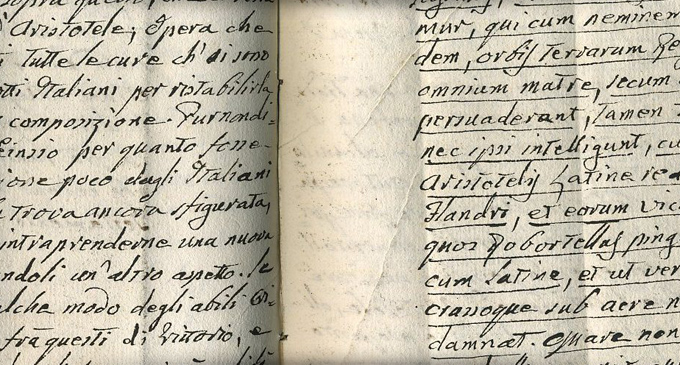 sopra
d'Aristotele; Opera che
tutte le cure ch' si sono
Italiani per ristabilirla
composizione. Pur nondi-
Einsio per quanto fosse
poco dagli Italiani
trova ancora sfigurata,
intraprenderne una nuova
un' altro aspetto. Se
qualche modo degli abili
frà questi di Vittorio, e
mur, qui cum neminem
dem, orbis terrarum Reg
omnium matre, secum
persuaderant, tamen
nec ipsi intelligunt, cu
Aristotelis Latine red
Flandri, et eorum vic
quos Robortellus ping
cum Latine, et ut ver
crassoque sub aere n
damnat. Quare non